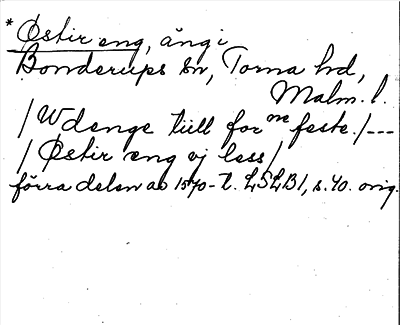 * Östir eng, äng i
Bonderups sn, Torna hd,
Malm. l.
/ Wdenge till for ne feste. / ---
/ Østir eng ej less /
förra delen av 1570-t. LSLB1, s. 40. orig.